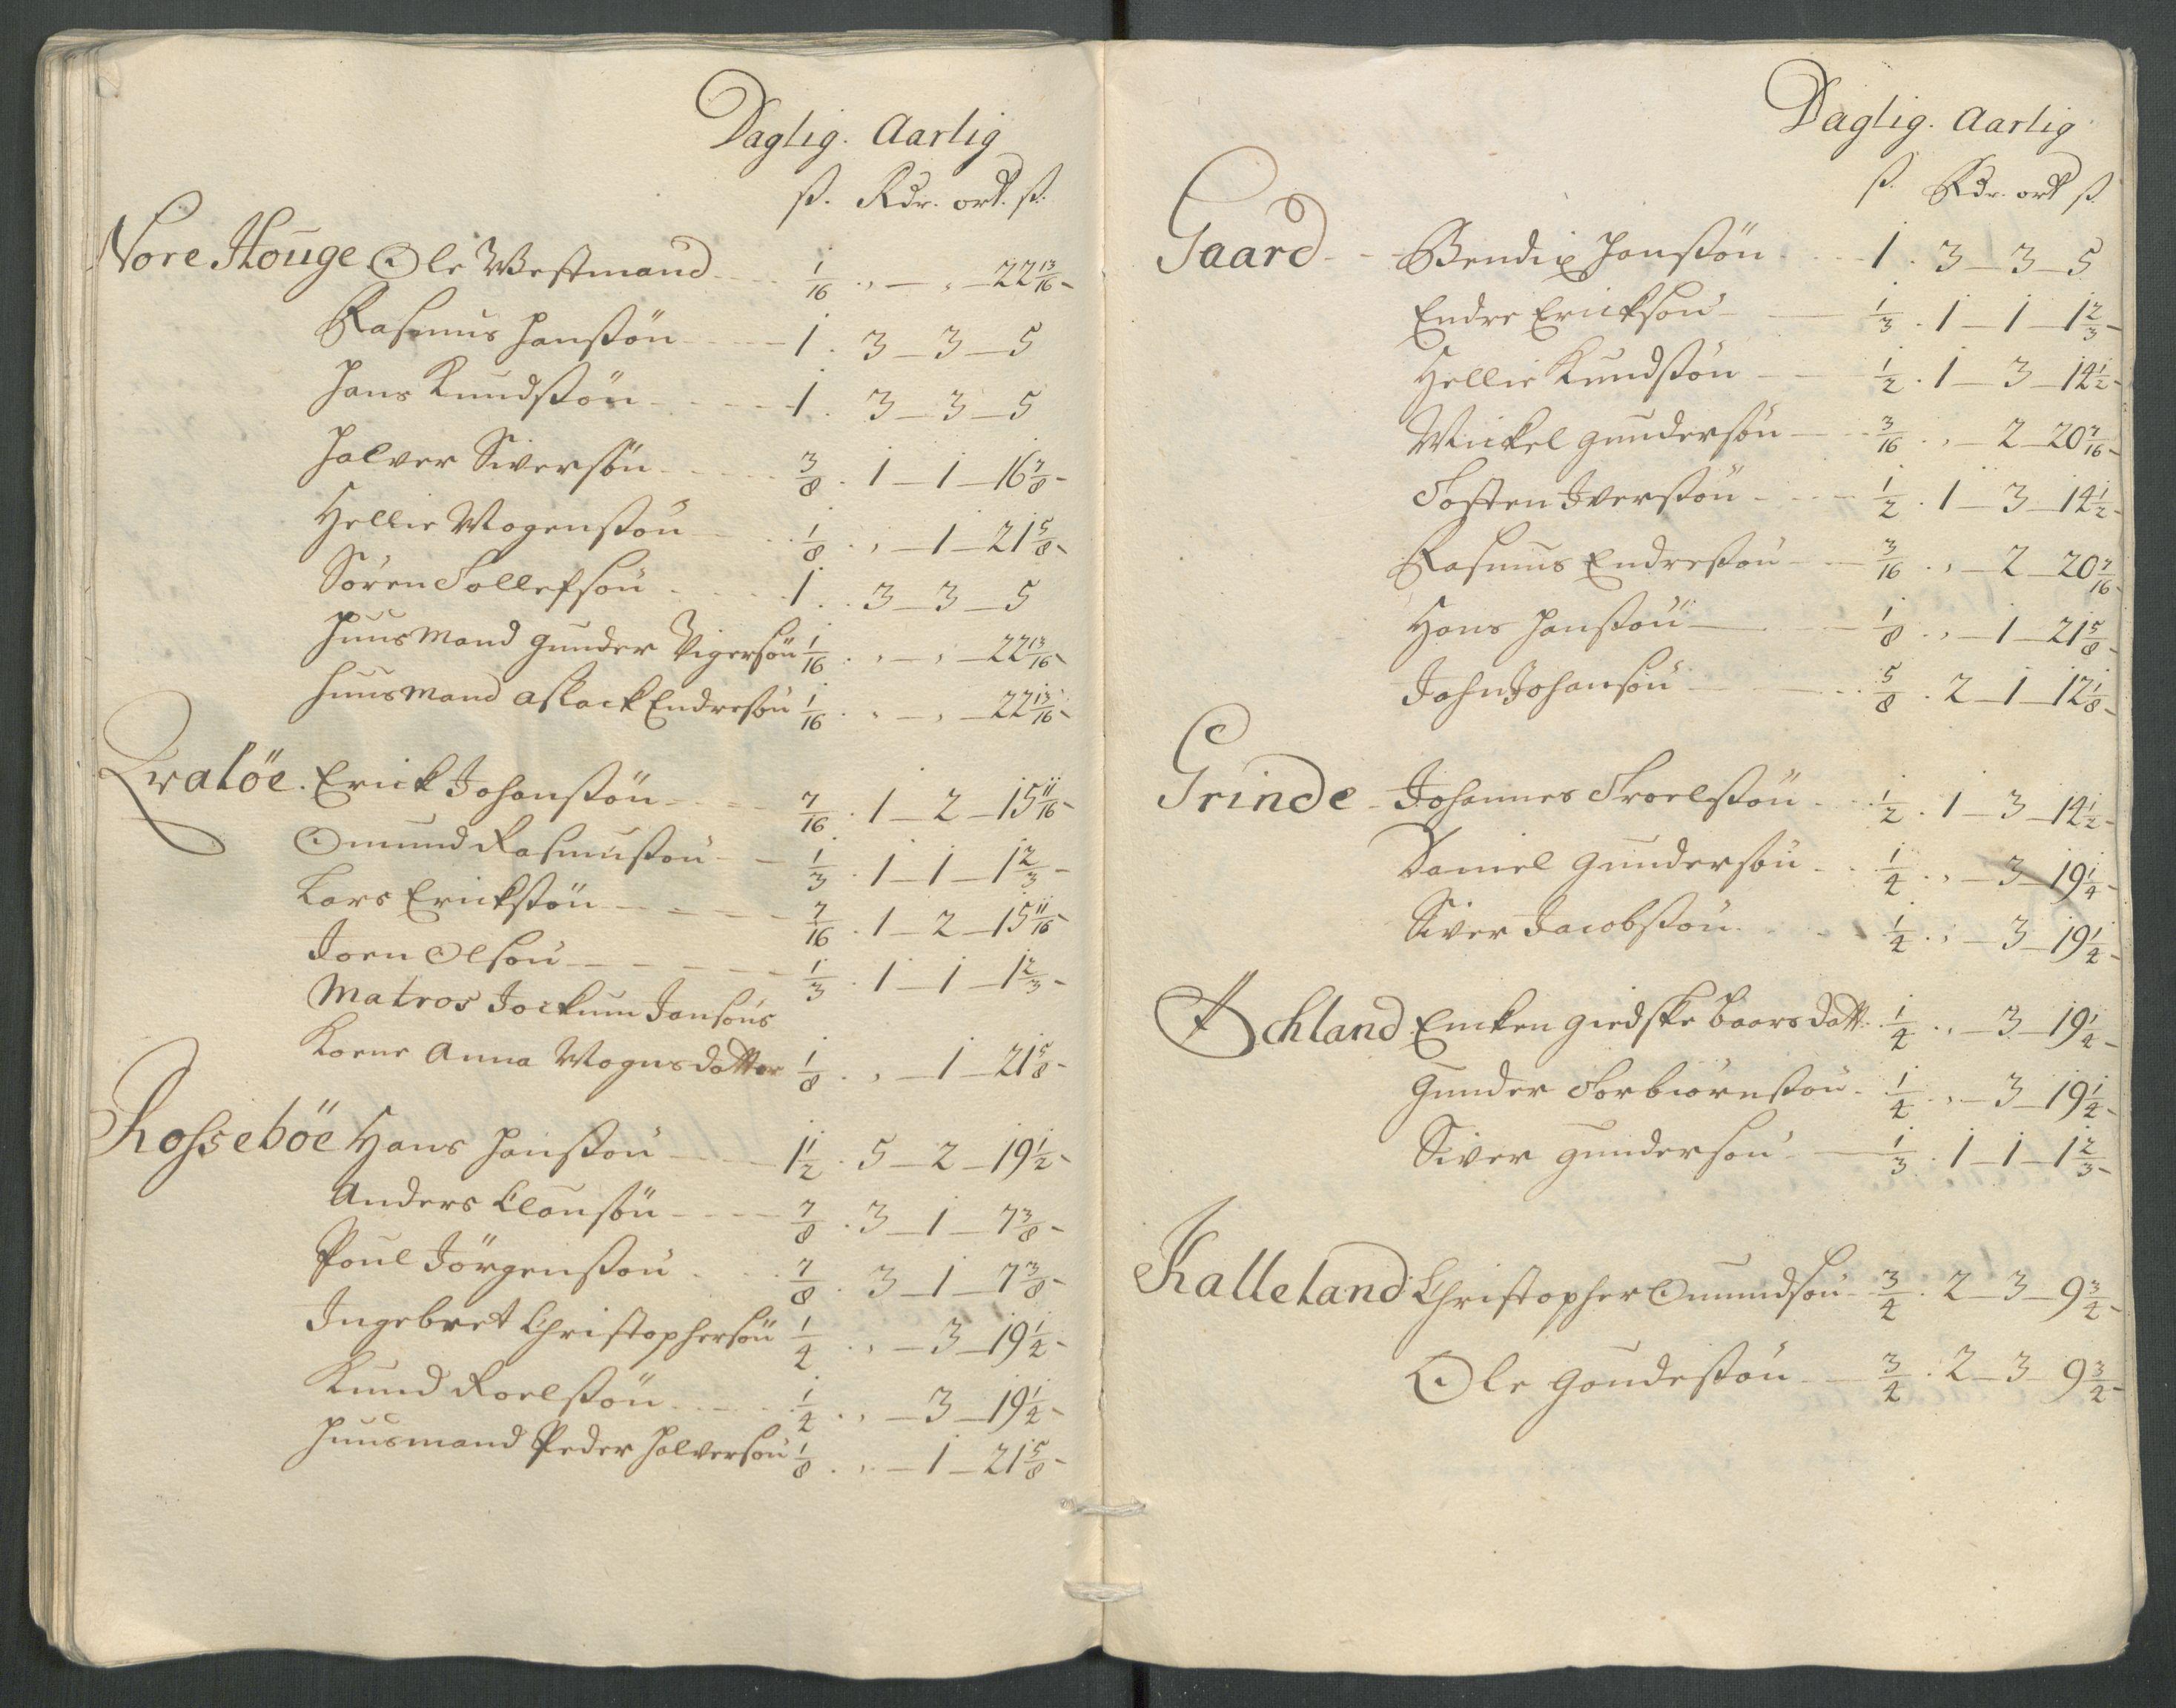 Daglig. Aarlig
ß. Rdr. ort. ß.
Nore Houge Ole Westmand 1/16 . , — , — 22 13/16
Rasmus Hanßön 1 . 3 — 3 — 5
Hans Knudßön 1 . 3 — 3 — 5
Halver Siversön 3/8 . 1 — 1 — 16 7/8
Hellie Mogenßön 1/8 . , — 1 — 21 5/8
Sören Tollefsön 1 . 3 — 3 — 5
Huusmand Gunder Vigersön 1/16 . , — , — 22 13/16
Huusmand Aslack Endresön 1/16 . , — , — 22 13/16
Qvalöe . Erick Johanßön 7/16 . 1 — 2 — 15 11/16
Omund Rasmusßön 1/3 . 1 — 1 — 1 2/3
Lars Erickßön 7/16 . 1 — 2 — 15 11/16
Joen Olsön 1/3 . 1 — 1 — 1 2/3
Matros Jockum Jansöns
Koene Anna Mognsdatter 1/8 . , — 1 — 21 5/8
Rosseböe Hans Hanßön 1 1/2 . 5 — 2 — 19 1/2
Anders Clausön 7/8 . 3 — 1 — 7 3/8
Poul Jörgenßön 7/8 . 3 — 1 — 7 3/8
Ingebret Christophersön 1/4 . , — 3 — 19 1/4
Knud Roelßön 1/4 . , — 3 — 19 1/4
Huusmand Peder Halversön 1/8 . , — 1 — 21 5/8
Daglig. Aarlig
ß. Rdr. ort ß
Gaard Bendix Hanßön 1 . 3 — 3 — 5
Endre Ericksön 1/3 . 1 — 1 — 1 2/3
Hellie Knudßön 1/2 . 1 — 3 — 14 1/2
Mickel Gundersön 3/16 . , — 2 — 20 7/16
Tosten Iverßön 1/2 . 1 — 3 — 14 1/2
Rasmus Endreßön 3/16 . , — 2 — 20 7/16
Hans Hanßön 1/8 . , — 1 — 21 5/8
John Johansön 5/8 . 2 — 1 — 12 1/8
Grinde Johannes Troelßön 1/2 . 1 — 3 — 14 1/2
Daniel Gundersön 1/4 . , — 3 — 19 1/4
Siver Jacobßön 1/4 . , — 3 — 19 1/4
Achland Encken Giedske Baarsdatt. 1/4 . , — 3 — 19 1/4
Gunder Torbiörnßön 1/4 . , — 3 — 19 1/4
Siver Gundersön 1/3 . 1 — 1 — 1 2/3
Kalleland Christopher Omundsön 3/4 . 2 — 3 — 9 3/4
Ole Gaudeßön 3/4 . 2 — 3 — 9 3/4